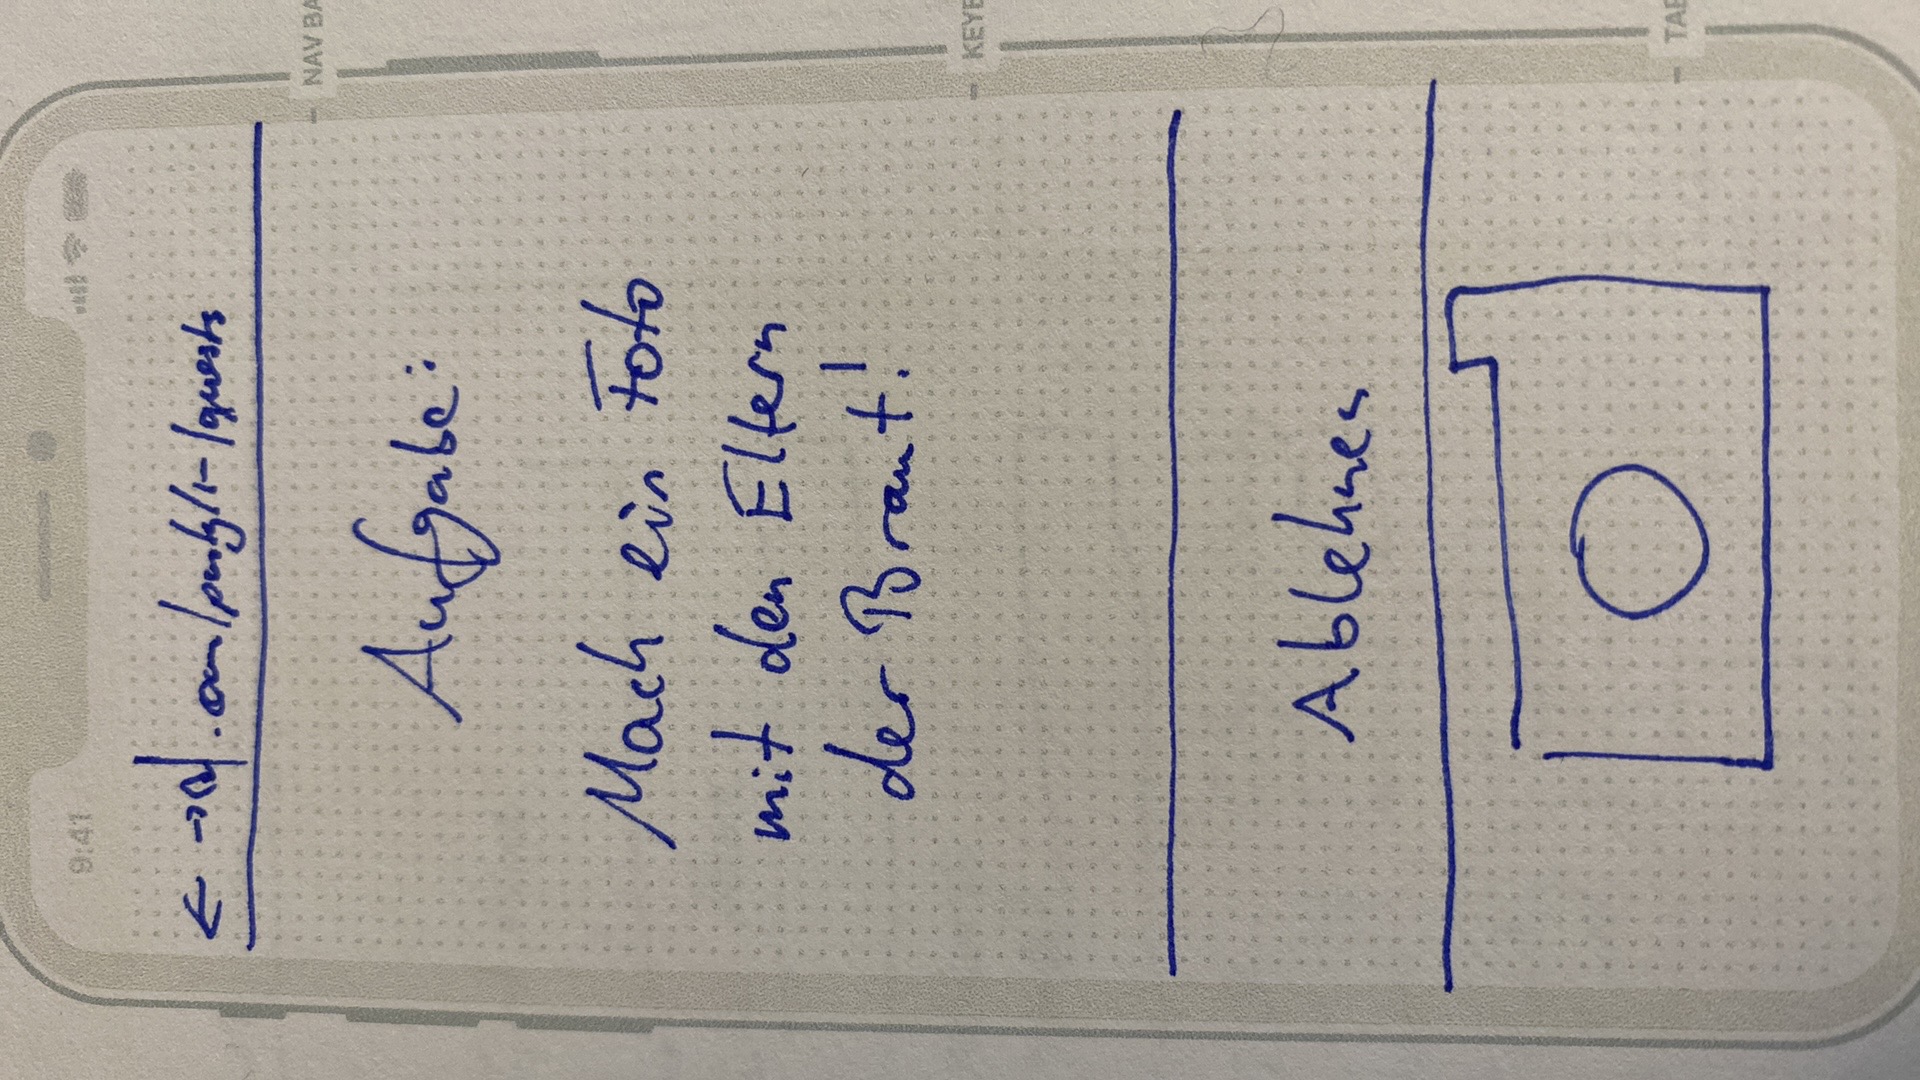 9:41
/guests
NAV BA
Aufgabe:
Mach ein Foto
mit den Eltern
der Braut!
KEYB
Ablehnen
TAB